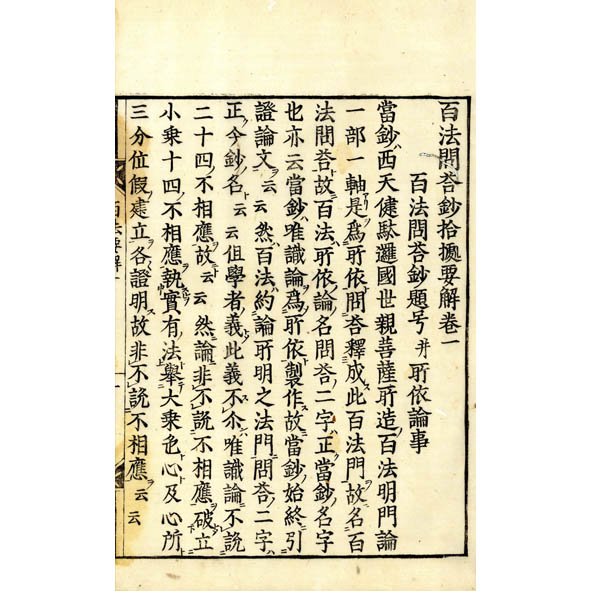 百法問荅鈔拾摭要解卷一
百法問荅鈔題号并所依論事
當鈔ハ西天健馱邏國世親菩薩所造ノ百法明門論
一部一軸是ヲ爲所依問荅釋成此百法門故名百
法問荅故百法ハ所依論ノ名問荅ノ二字正當鈔ノ名字
也亦云當鈔ハ唯識論ヲ爲所依製作故當鈔始終引
證論文云云然百法ハ約論所明之法門問荅ノ二字ハ
正今鈔ノ名ト云云但學者ノ義此義不尒唯識論ニ不説
二十四不相應故云云然論非不説不相應破立
小乗十四不相應執實有ノ法舉大乗色心及心所
三分位假建立各證明ス故非不説不相應云云
百法要解一